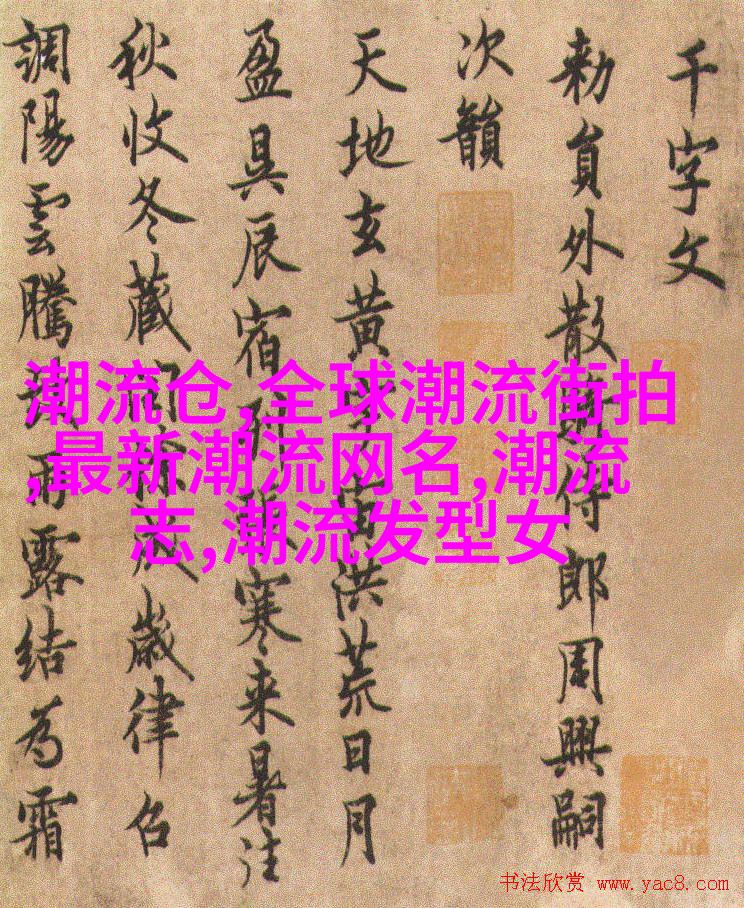 千字文
勑員外散騎侍郎周興嗣
次韻
天地玄黄宇宙洪荒日月
盈昃辰宿列張寒来暑往
秋收冬藏閏餘成歲律召
調陽雲騰致雨露結為霜
潮流仓,全球潮流街拍
,最新潮流网名,潮流
志,潮流发型女
书法欣赏 www.yac8.com